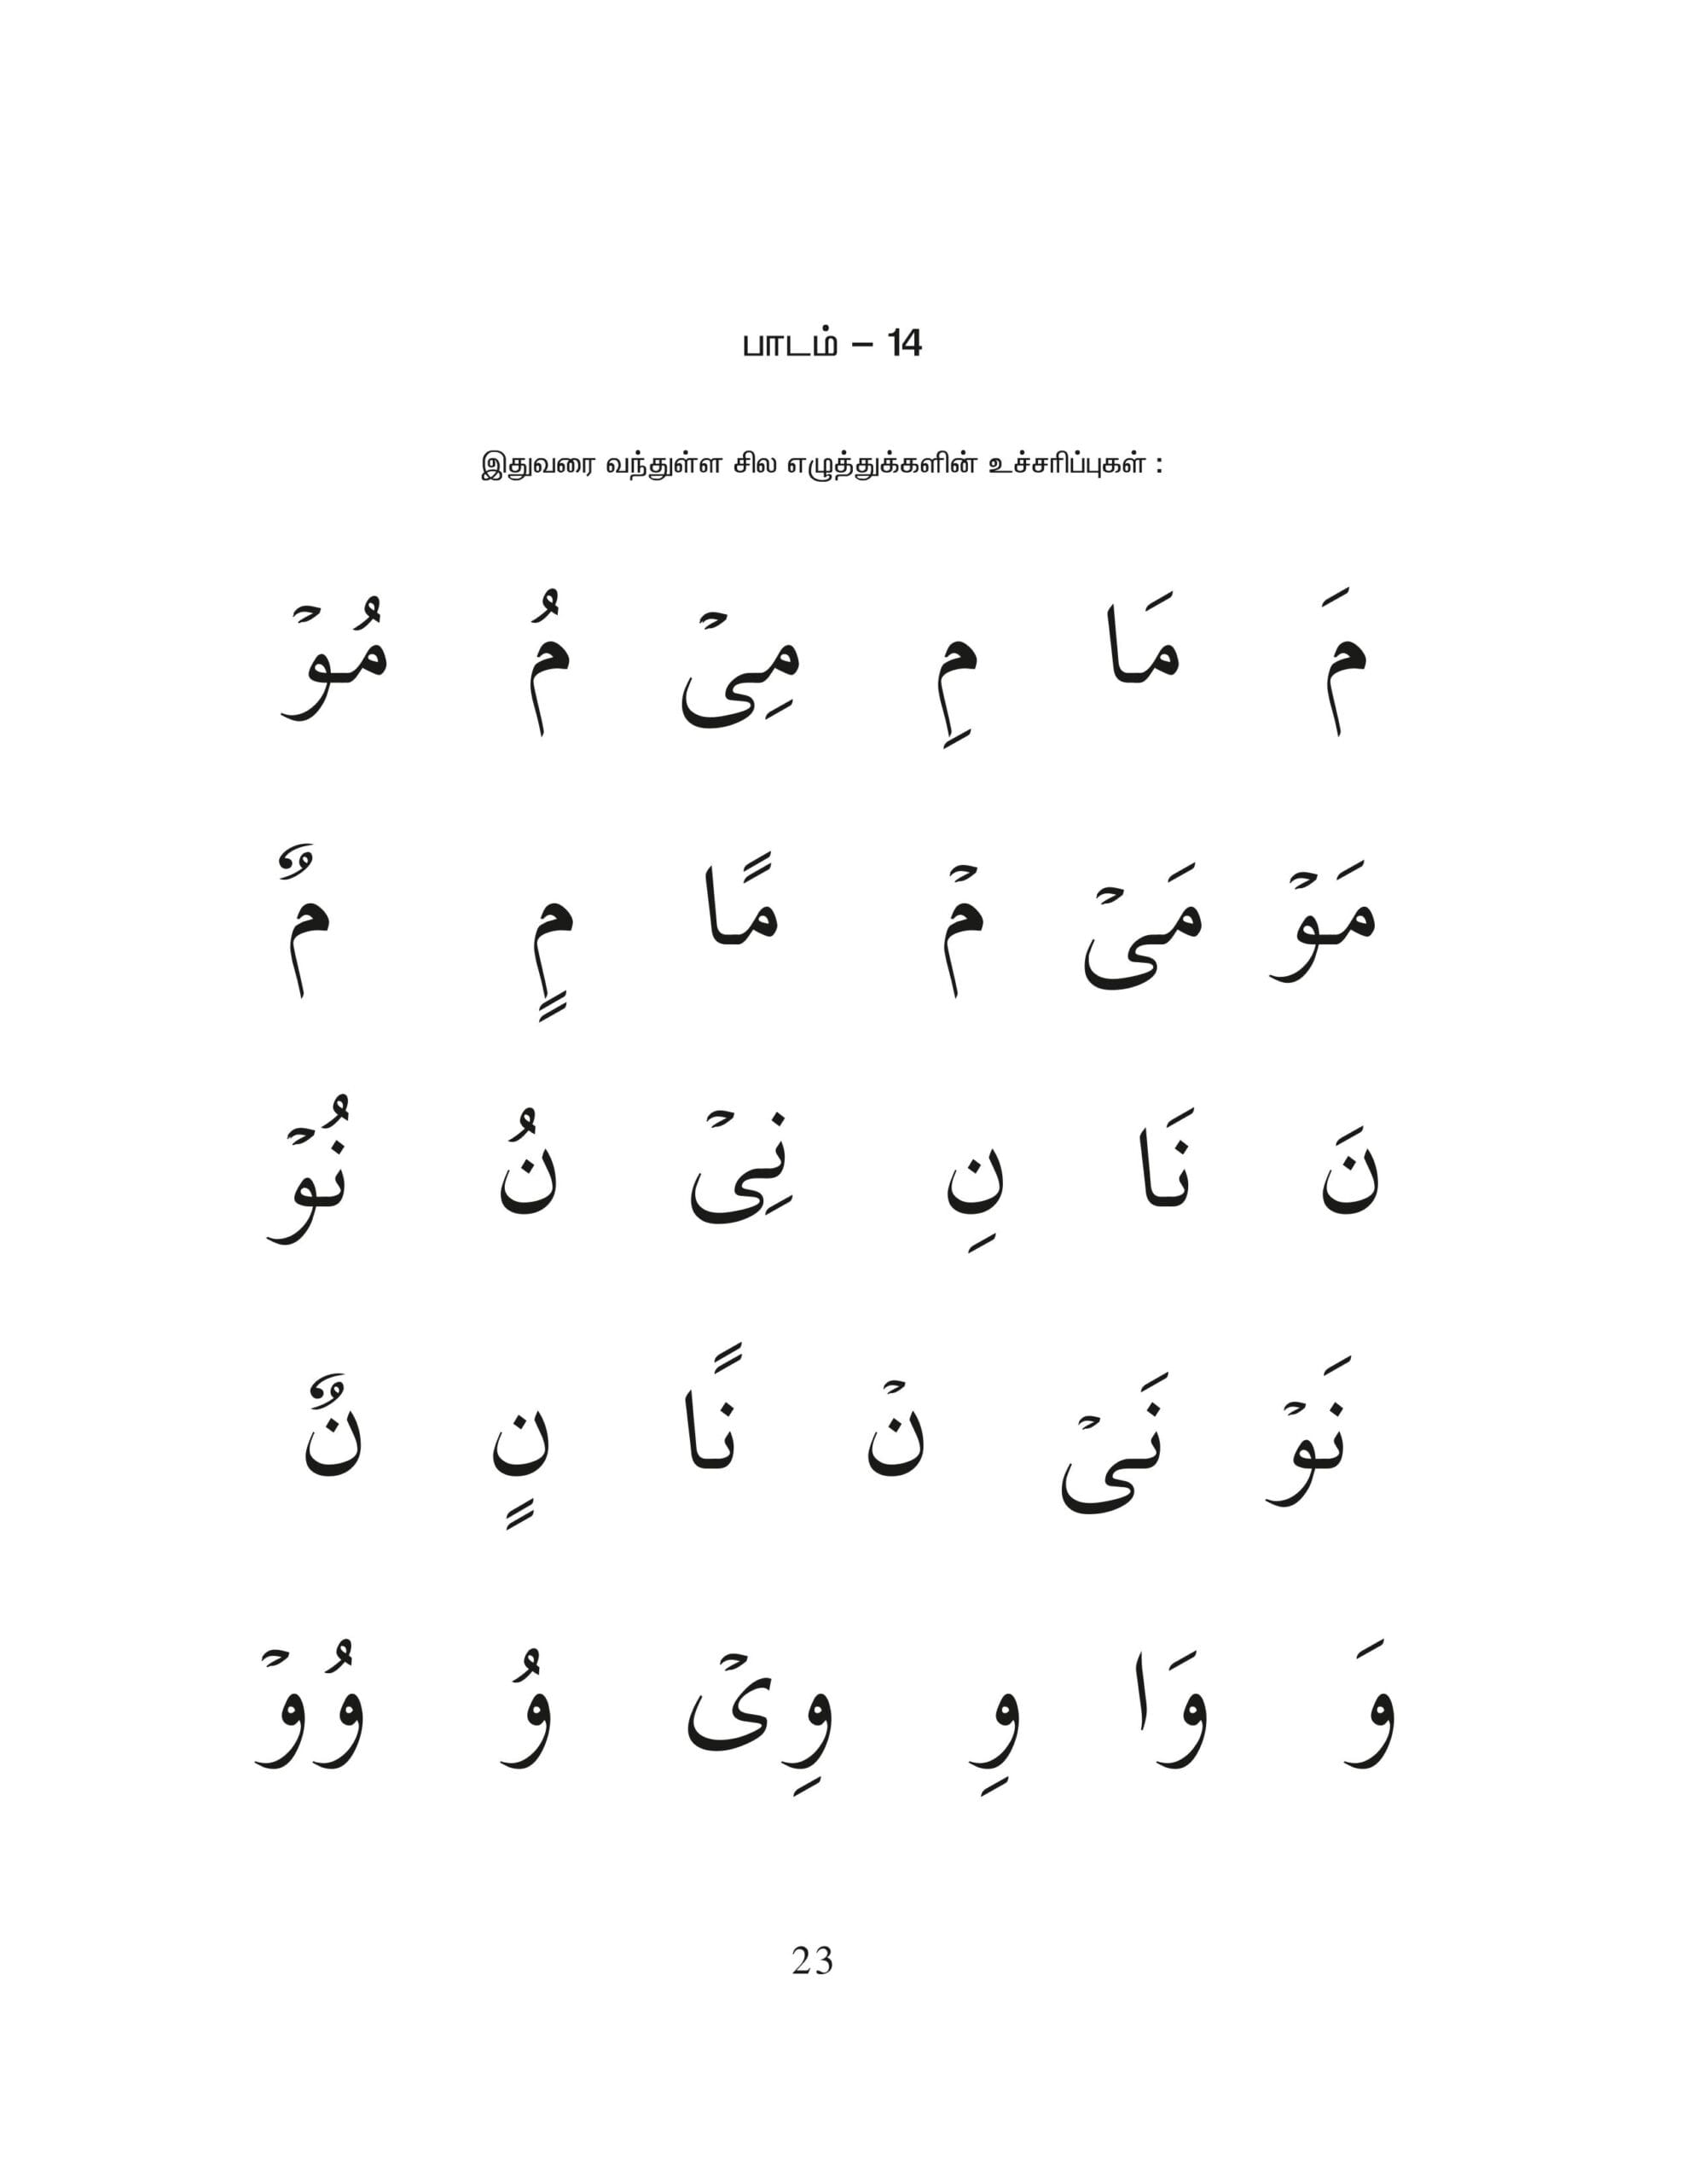 பாடம் – 14
இதுவரை வந்துள்ள சில எழுத்துக்களின் உச்சரிப்புகள் :
مَ مَا مِ مِىۡ مُ مُوۡ
مَوۡ مَىۡ مۡ مًا مٍ مٌ
نَ نَا نِ نِىۡ نُ نُوۡ
نَوۡ نَىۡ نۡ نًا نٍ نٌ
وَ وَا وِ وِىۡ وُ وُوۡ
23